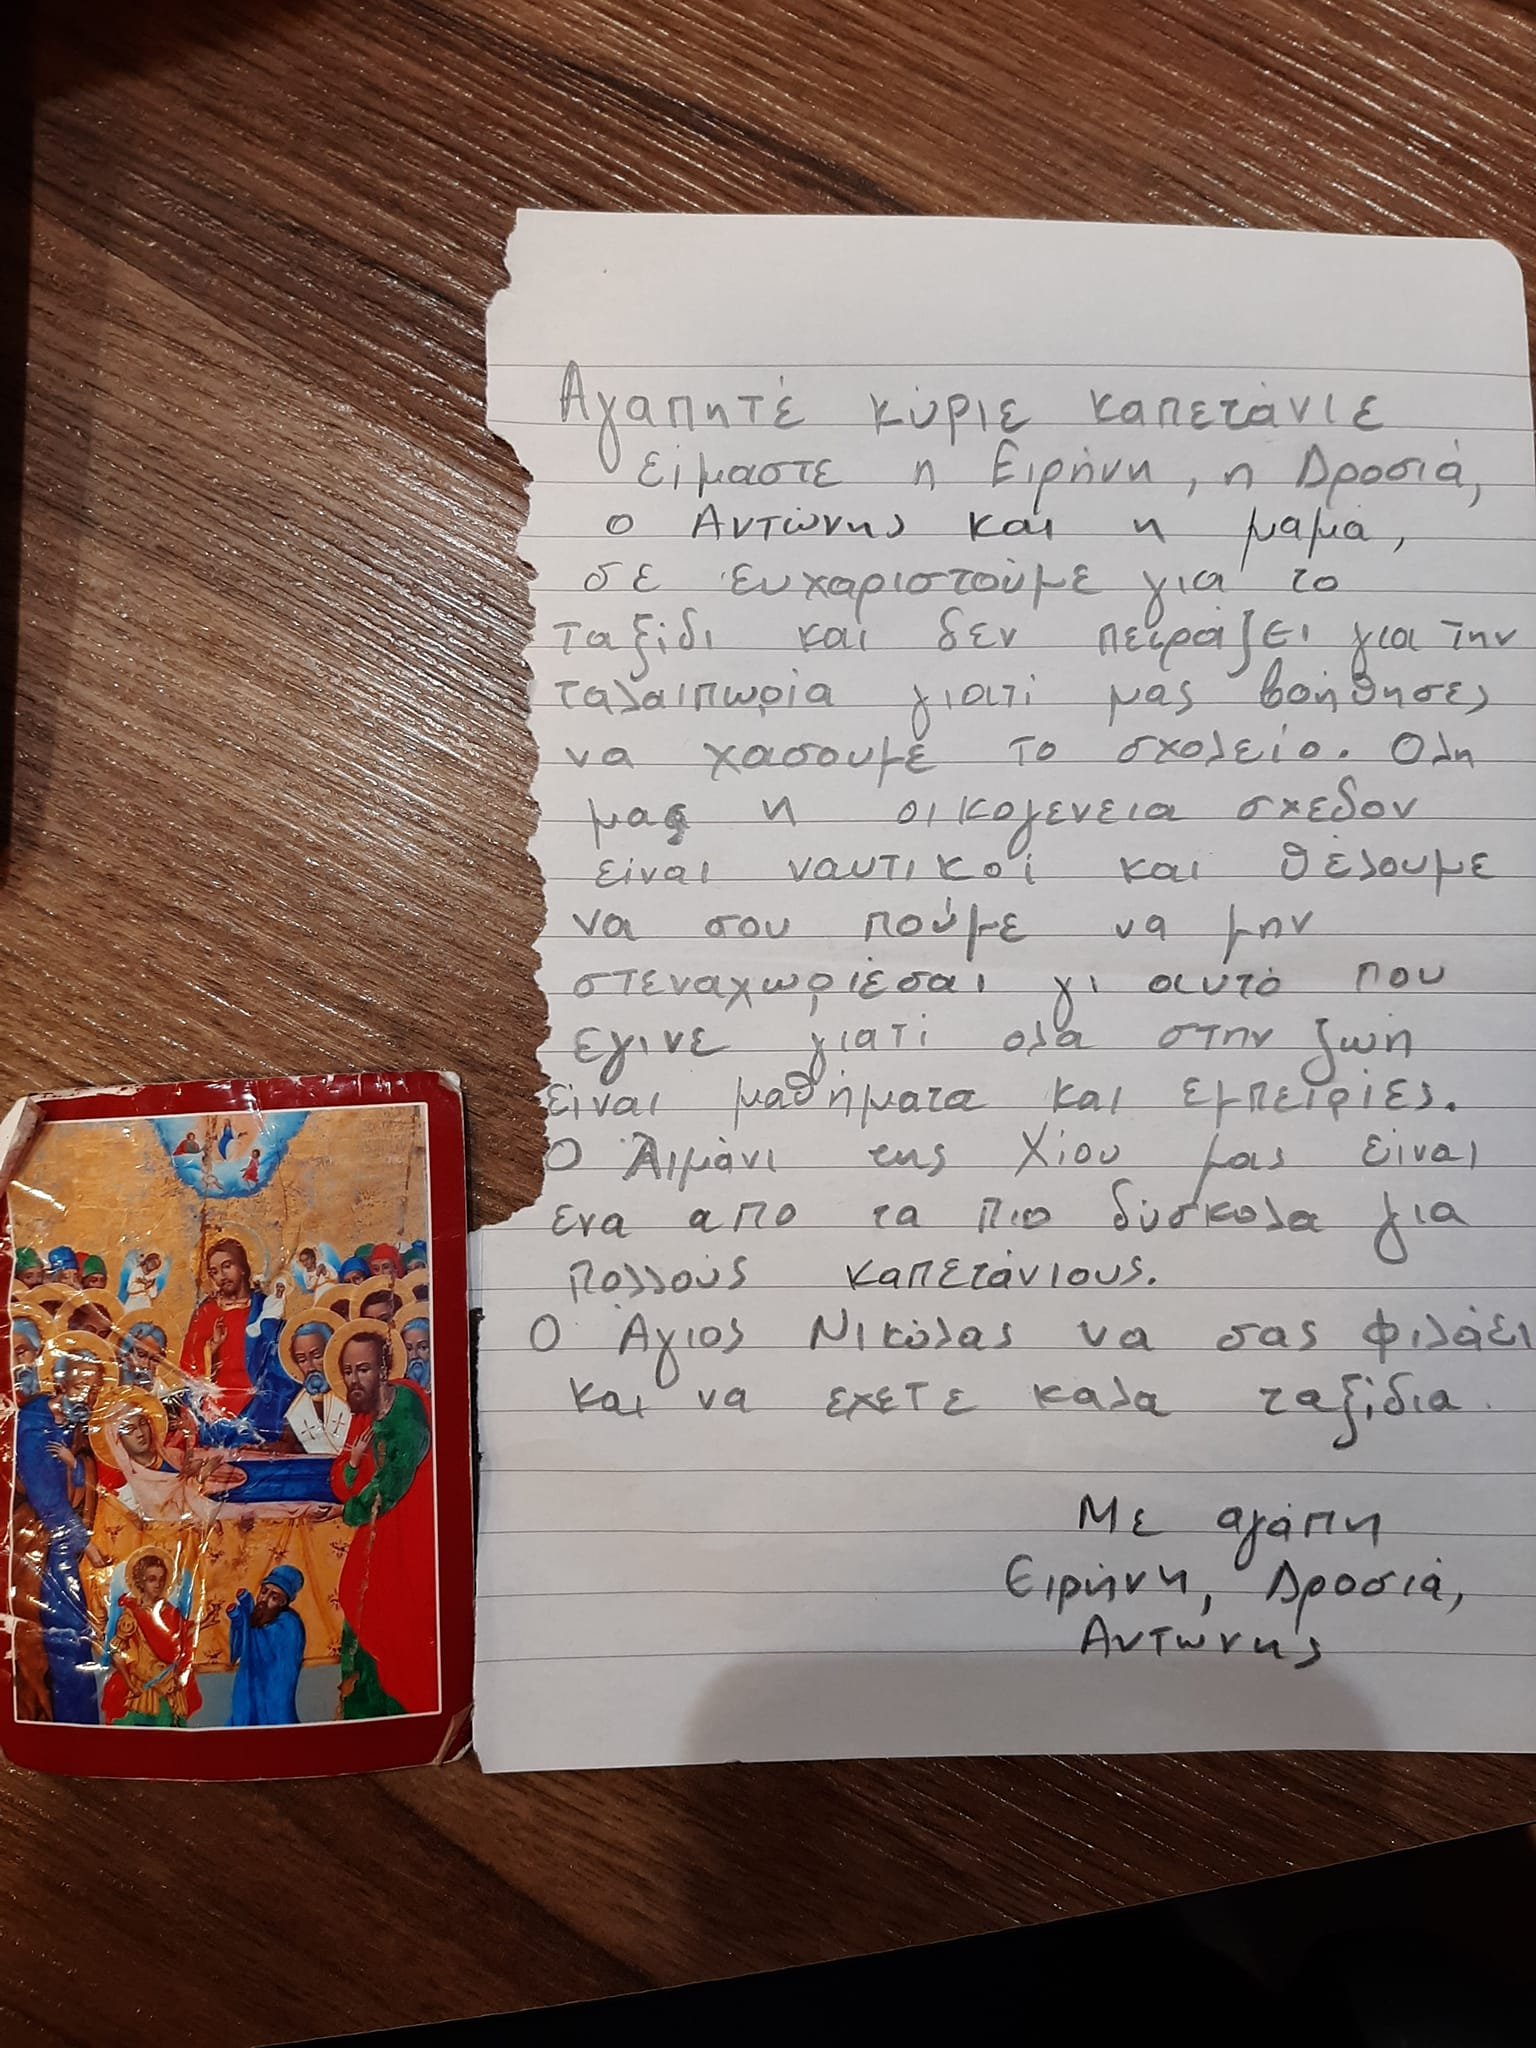 Αγαπητέ κύριε καπετάνιε
είμαστε η Ειρήνη, η Δροσιά,
ο Αντώνης και η μαμά,
σε ευχαριστούμε για το
ταξίδι και δεν πειράζει για την
ταλαιπωρία γιατί μας βοήθησες
να χασουμε το σχολείο. Ολη
μας η οικογενεια σχεδον
είναι ναυτικοί και θέλουμε
να σου πούμε να μην
στεναχωριέσαι γι αυτό που
εγινε γιατί ολα στην ζωή
είναι μαθήματα και εμπειρίες.
Ο Λιμάνι της Χίου μας είναι
ενα απο τα πιο δύσκολα για
πολλούς καπετάνιους.
Ο Άγιος Νικόλας να σας φιλάει
και να εχετε καλα ταξίδια.
Με αγάπη
Ειρήνη, Δροσιά,
Αντωνης